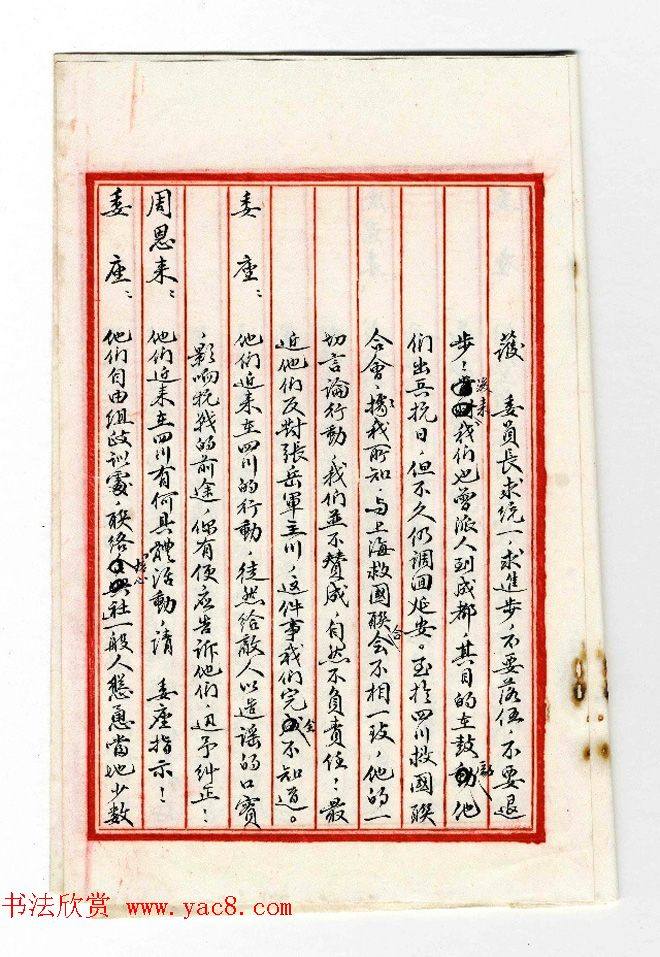 護　委員長求統一，求進步，不要落伍，不要退
步！後来我們也曾派人到成都，其目的在鼓勵他
們出兵抗日，但不久仍調回延安。至於四川救國聯
合會，據我所知，与上海救國聯合會不相一致，他的一
切言論行動，我們並不贊成，自然不負責任！最
近他們反對張岳軍主川，這件事我們完全不知道。
委座：他們近来在四川的行動，徒然給敵人以造謠的口實
，影响抗战的前途，你有便應告訴他們，迅予糾正！
周恩来：他們近来在四川有何具體活動，請　委座指示！
委座：他們自由組政訓處，聯络社一般人慫恿當地少數
书法欣赏 www.yac8.com